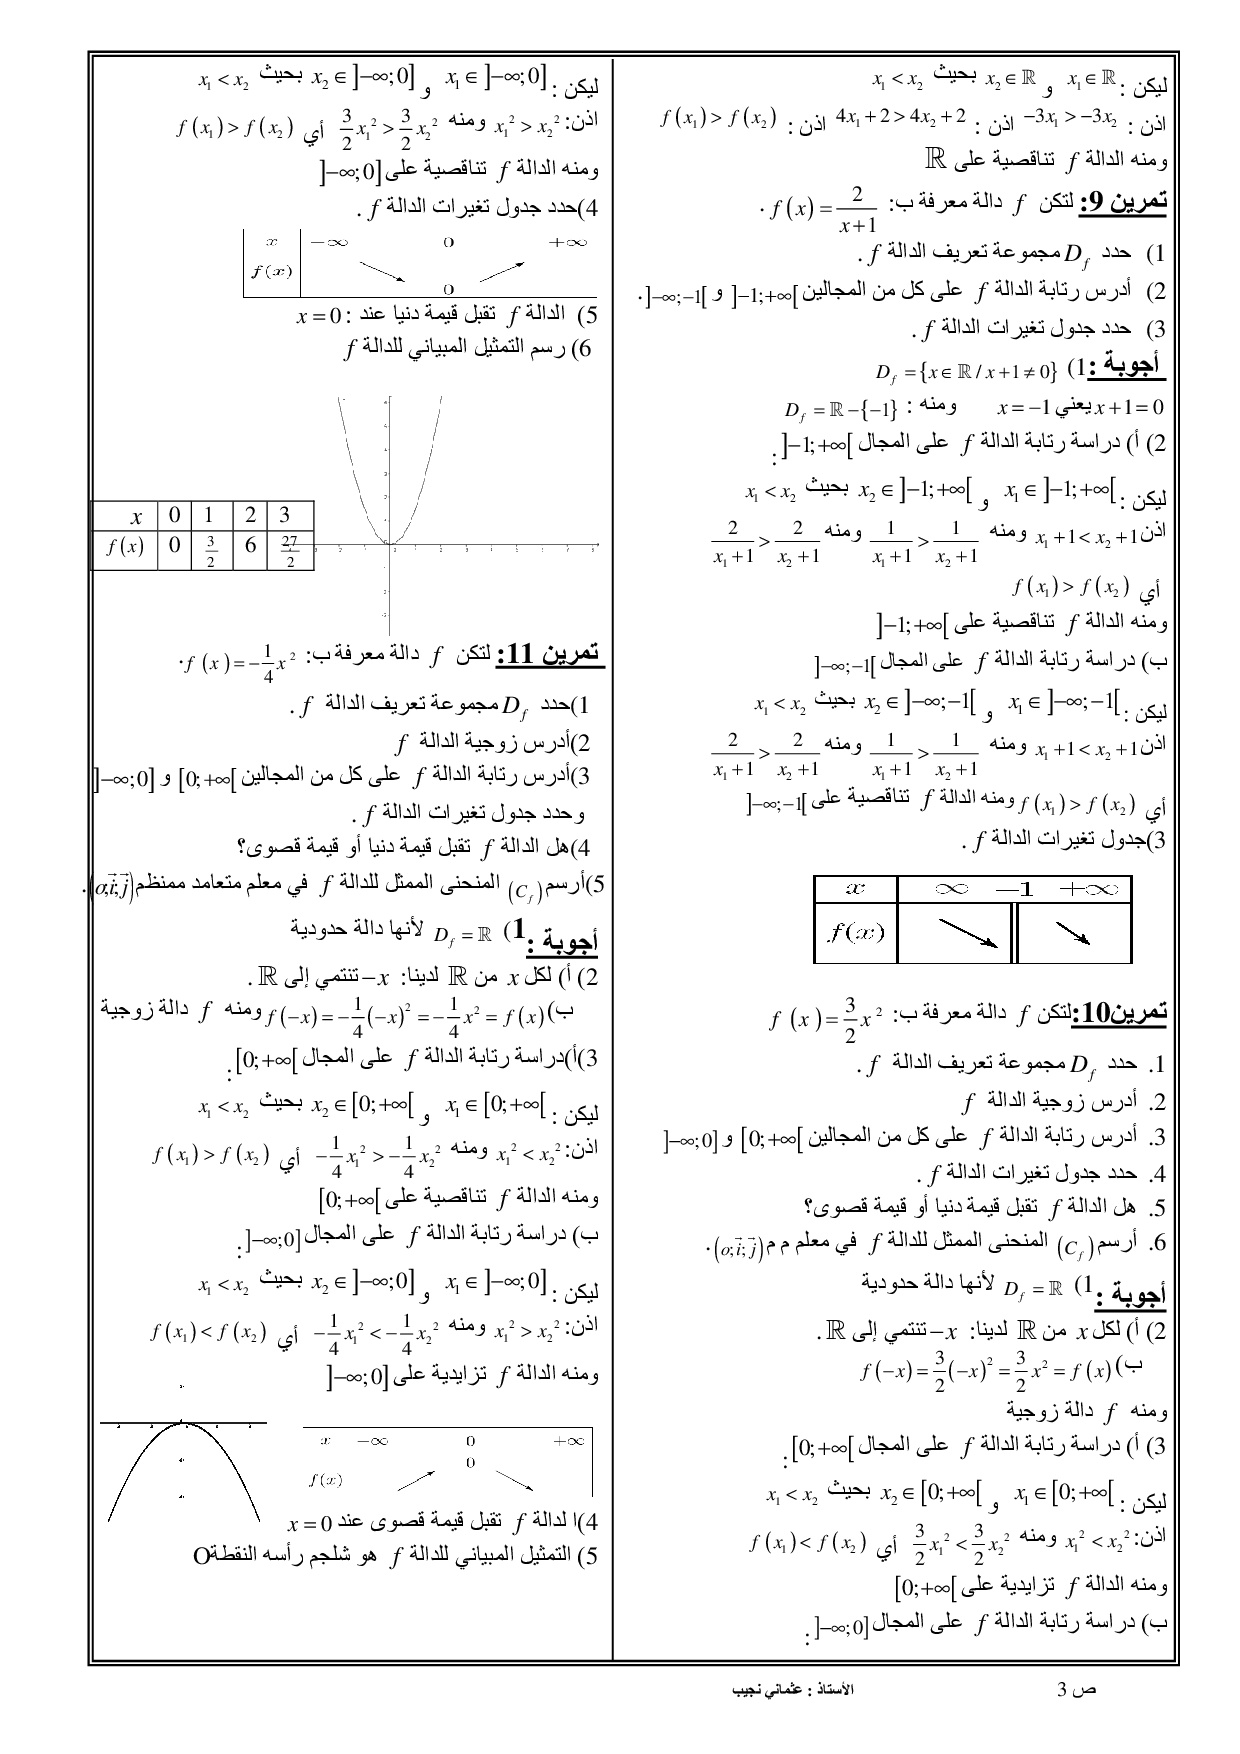 ليكن : x₁ ∈ ℝ و x₂ ∈ ℝ بحيث x₁ < x₂
اذن : −3x₁ > −3x₂ اذن : 4x₁ + 2 > 4x₂ + 2 اذن : f(x₁) > f(x₂)
ومنه الدالة f تناقصية على ℝ
تمرين 9: لتكن f دالة معرفة ب: f(x) = 2/(x+1) .
1) حدد D_f مجموعة تعريف الدالة f .
2) أدرس رتابة الدالة f على كل من المجالين ]−1;+∞[ و ]−∞;−1[.
3) حدد جدول تغيرات الدالة f .
أجوبة :1) D_f = {x ∈ ℝ / x + 1 ≠ 0}
x + 1 = 0 يعني x = −1 ومنه : D_f = ℝ − {−1}
2) أ) دراسة رتابة الدالة f على المجال ]−1;+∞[ :
ليكن : x₁ ∈ ]−1;+∞[ و x₂ ∈ ]−1;+∞[ بحيث x₁ < x₂
اذن x₁ + 1 < x₂ + 1 ومنه 1/(x₁+1) > 1/(x₂+1) ومنه 2/(x₁+1) > 2/(x₂+1)
أي f(x₁) > f(x₂)
ومنه الدالة f تناقصية على ]−1;+∞[
ب) دراسة رتابة الدالة f على المجال ]−∞;−1[
ليكن : x₁ ∈ ]−∞;−1[ و x₂ ∈ ]−∞;−1[ بحيث x₁ < x₂
اذن x₁ + 1 < x₂ + 1 ومنه 1/(x₁+1) > 1/(x₂+1) ومنه 2/(x₁+1) > 2/(x₂+1)
أي f(x₁) > f(x₂) ومنه الدالة f تناقصية على ]−∞;−1[
3)جدول تغيرات الدالة f .
x ∞ −1 +∞
f(x)
تمرين10:لتكن f دالة معرفة ب: f(x) = 3/2 x²
1. حدد D_f مجموعة تعريف الدالة f .
2. أدرس زوجية الدالة f
3. أدرس رتابة الدالة f على كل من المجالين [0;+∞[ و ]−∞;0]
4. حدد جدول تغيرات الدالة f .
5. هل الدالة f تقبل قيمة دنيا أو قيمة قصوى؟
6. أرسم (C_f) المنحنى الممثل للدالة f في معلم م م (o;i⃗;j⃗) .
أجوبة :1) D_f = ℝ لأنها دالة حدودية
2) أ) لكل x من ℝ لدينا: −x تنتمي إلى ℝ .
ب) f(−x) = 3/2 (−x)² = 3/2 x² = f(x)
ومنه f دالة زوجية
3) أ) دراسة رتابة الدالة f على المجال [0;+∞[ :
ليكن : x₁ ∈ [0;+∞[ و x₂ ∈ [0;+∞[ بحيث x₁ < x₂
اذن: x₁² < x₂² ومنه 3/2 x₁² < 3/2 x₂² أي f(x₁) < f(x₂)
ومنه الدالة f تزايدية على [0;+∞[
ب) دراسة رتابة الدالة f على المجال ]−∞;0] :
ليكن : x₁ ∈ ]−∞;0] و x₂ ∈ ]−∞;0] بحيث x₁ < x₂
اذن: x₁² > x₂² ومنه 3/2 x₁² > 3/2 x₂² أي f(x₁) > f(x₂)
ومنه الدالة f تناقصية على ]−∞;0]
4)حدد جدول تغيرات الدالة f .
x −∞ 0 +∞
f(x) 0
5) الدالة f تقبل قيمة دنيا عند : x = 0
6) رسم التمثيل المبياني للدالة f
x 0 1 2 3
f(x) 0 3/2 6 27/2
تمرين 11: لتكن f دالة معرفة ب: f(x) = −1/4 x² .
1)حدد D_f مجموعة تعريف الدالة f .
2)أدرس زوجية الدالة f
3)أدرس رتابة الدالة f على كل من المجالين [0;+∞[ و ]−∞;0]
وحدد جدول تغيرات الدالة f .
4)هل الدالة f تقبل قيمة دنيا أو قيمة قصوى؟
5)أرسم (C_f) المنحنى الممثل للدالة f في معلم متعامد ممنظم (o;i⃗;j⃗) .
أجوبة :1) D_f = ℝ لأنها دالة حدودية
2) أ) لكل x من ℝ لدينا: −x تنتمي إلى ℝ .
ب) f(−x) = −1/4 (−x)² = −1/4 x² = f(x) ومنه f دالة زوجية
3)أ)دراسة رتابة الدالة f على المجال [0;+∞[ :
ليكن : x₁ ∈ [0;+∞[ و x₂ ∈ [0;+∞[ بحيث x₁ < x₂
اذن: x₁² < x₂² ومنه −1/4 x₁² > −1/4 x₂² أي f(x₁) > f(x₂)
ومنه الدالة f تناقصية على [0;+∞[
ب) دراسة رتابة الدالة f على المجال ]−∞;0] :
ليكن : x₁ ∈ ]−∞;0] و x₂ ∈ ]−∞;0] بحيث x₁ < x₂
اذن: x₁² > x₂² ومنه −1/4 x₁² < −1/4 x₂² أي f(x₁) < f(x₂)
ومنه الدالة f تزايدية على ]−∞;0]
x −∞ 0 +∞
f(x) 0
4)ا لدالة f تقبل قيمة قصوى عند x = 0
5) التمثيل المبياني للدالة f هو شلجم رأسه النقطةO
ص 3 الأستاذ : عثماني نجيب